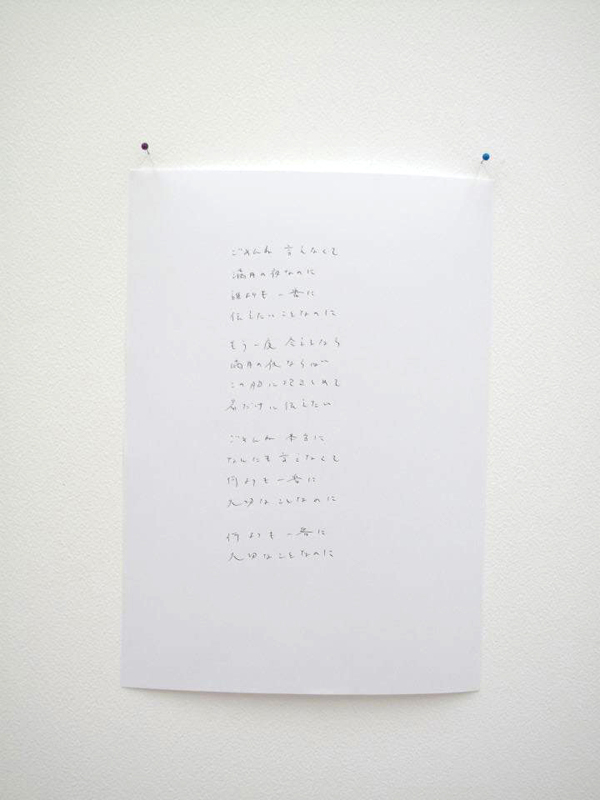 ごめんね 言えなくて
満月の夜なのに
誰よりも 一番に
伝えたいことなのに
もう一度 会えるなら
満月の夜ならば
この胸に
君だけに 伝えたい
ごめんね 本当に
なんにも言えなくて
何よりも 一番に
大切なことなのに
何よりも 一番に
大切なことなのに